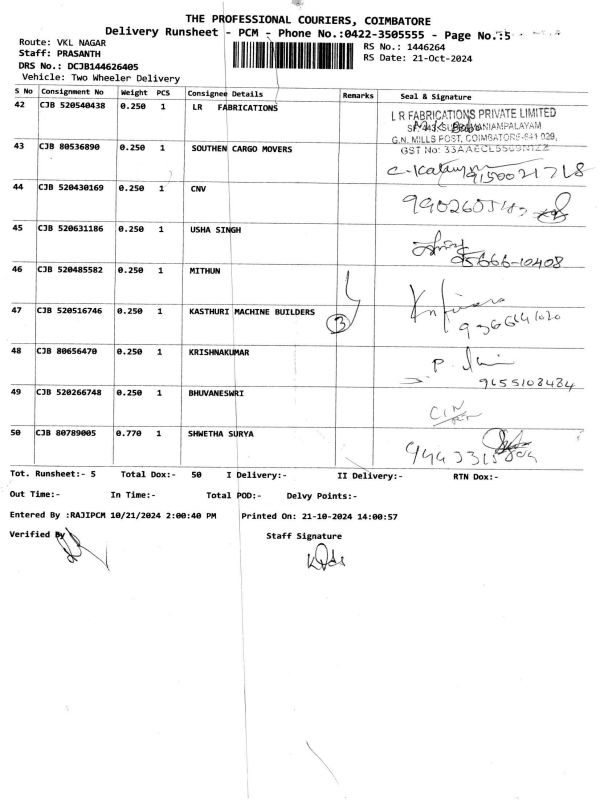 THE PROFESSIONAL COURIERS, COIMBATORE
Delivery Runsheet - PCM - Phone No.:0422-3505555 - Page No.:5
Route: VKL NAGAR
Staff: PRASANTH
DRS No.: DCJB144626405
Vehicle: Two Wheeler Delivery
RS No.: 1446264
RS Date: 21-Oct-2024
S No Consignment No Weight PCS Consignee Details Remarks Seal & Signature
42 CJB 520540438 0.250 1 LR FABRICATIONS
L R FABRICATIONS PRIVATE LIMITED
G.N. MILLS POST, COIMBATORE-641 029,
43 CJB 80536890 0.250 1 SOUTHEN CARGO MOVERS
9150021718
44 CJB 520430169 0.250 1 CNV
45 CJB 520631186 0.250 1 USHA SINGH
95666-10408
46 CJB 520485582 0.250 1 MITHUN
47 CJB 520516746 0.250 1 KASTHURI MACHINE BUILDERS
3
48 CJB 80656470 0.250 1 KRISHNAKUMAR
49 CJB 520266748 0.250 1 BHUVANESWRI
50 CJB 80789005 0.770 1 SHWETHA SURYA
Tot. Runsheet:- 5 Total Dox:- 50 I Delivery:- II Delivery:- RTN Dox:-
Out Time:- In Time:- Total POD:- Delvy Points:-
Entered By :RAJIPCM 10/21/2024 2:00:40 PM Printed On: 21-10-2024 14:00:57
Verified By Staff Signature